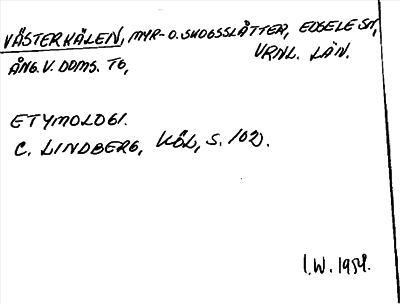 VÄSTERKÄLEN, MYR- O. SKOGSSLÅTTER, EDSELE SN,
ÅNG. V. DOMS. TG, VRNL. LÄN.
ETYMOLOGI.
C. LINDBERG, KÖL, S. 102.
I.W. 1954.